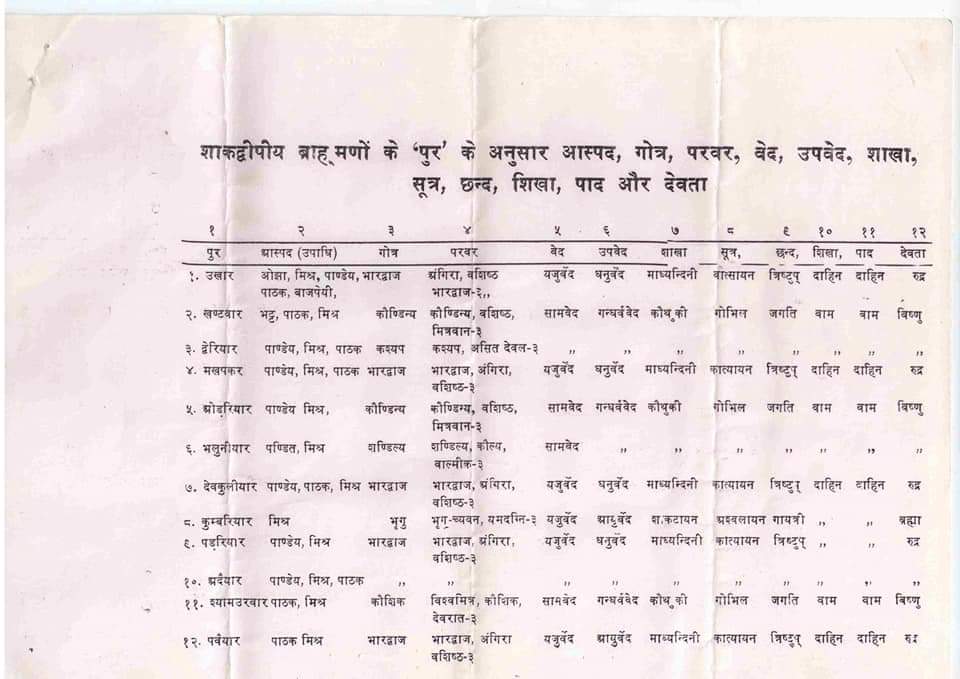 शाकद्वीपीय ब्राह्मणों के ‘पुर’ के अनुसार आस्पद, गोत्र, परवर, वेद, उपवेद, शाखा,
सूत्र, छन्द, शिखा, पाद और देवता
१ २ ३ ४ ५ ६ ७ ८ ९ १० ११ १२
पुर आस्पद (उपाधि) गोत्र परवर वेद उपवेद शाखा सूत्र, छन्द, शिखा, पाद देवता
१. उरवार ओझा, मिश्र, पाण्डेय, भारद्वाज अंगिरा, वशिष्ठ यजुर्वेद धनुर्वेद माध्यन्दिनी वात्सायन त्रिष्टुप् दाहिन दाहिन रुद्र
पाठक, बाजपेयी, भारद्वाज-३,,
२. खण्टवार भट्ट, पाठक, मिश्र कौण्डिन्य कौण्डिन्य, वशिष्ठ, सामवेद गन्धर्ववेद कौथुकी गोभिल जगति वाम वाम विष्णु
मित्रवान-३
३. द्वेरियार पाण्डेय, मिश्र, पाठक कश्यप कश्यप, असित देवल-३ ,, ,, ,, ,, ,, ,, ,, ,,
४. मखपकर पाण्डेय, मिश्र, पाठक भारद्वाज भारद्वाज, अंगिरा, यजुर्वेद धनुर्वेद माध्यन्दिनी कात्यायन त्रिष्टुप् दाहिन दाहिन रुद्र
वशिष्ठ-३
५. ओडरियार पाण्डेय मिश्र, कौण्डिन्य कौण्डिन्य, वशिष्ठ, सामवेद गन्धर्ववेद कौथुकी गोभिल जगति वाम वाम विष्णु
मित्रवान-३
६. भलुनीयार पण्डित, मिश्र शण्डिल्य शण्डिल्य, कौल्य, सामवेद ,, ,, ,, ,, ,, ,, ,,
वाल्मीक-३
७. देवकुलीयार पाण्डेय, पाठक, मिश्र भारद्वाज भारद्वाज, अंगिरा, यजुर्वेद धनुर्वेद माध्यन्दिनी कात्यायन त्रिष्टुप् दाहिन दाहिन रुद्र
वशिष्ठ-३
८. कुम्बरियार मिश्र भृगु भृगु-च्यवन, यमदग्नि-३ यजुर्वेद आयुर्वेद शकटायन अश्वलायन गायत्री ,, ,, ब्रह्मा
९. पड़रियार पाण्डेय, मिश्र भारद्वाज भारद्वाज, अंगिरा, यजुर्वेद धनुर्वेद माध्यन्दिनी कात्यायन त्रिष्टुप् ,, ,, रुद्र
वशिष्ठ-३
१०. अदैयार पाण्डेय, मिश्र, पाठक ,, ,, ,, ,, ,, ,, ,, ,, ,, ,,
११. श्यामउरवार पाठक, मिश्र कौशिक विश्वमित्र, कौशिक, सामवेद गन्धर्ववेद कौथुकी गोभिल जगति वाम वाम विष्णु
देवरात-३
१२. पर्वयार पाठक मिश्र भारद्वाज भारद्वाज, अंगिरा यजुर्वेद आयुर्वेद माध्यन्दिनी कात्यायन त्रिष्टुप् दाहिन दाहिन रुद्र
वशिष्ठ-३